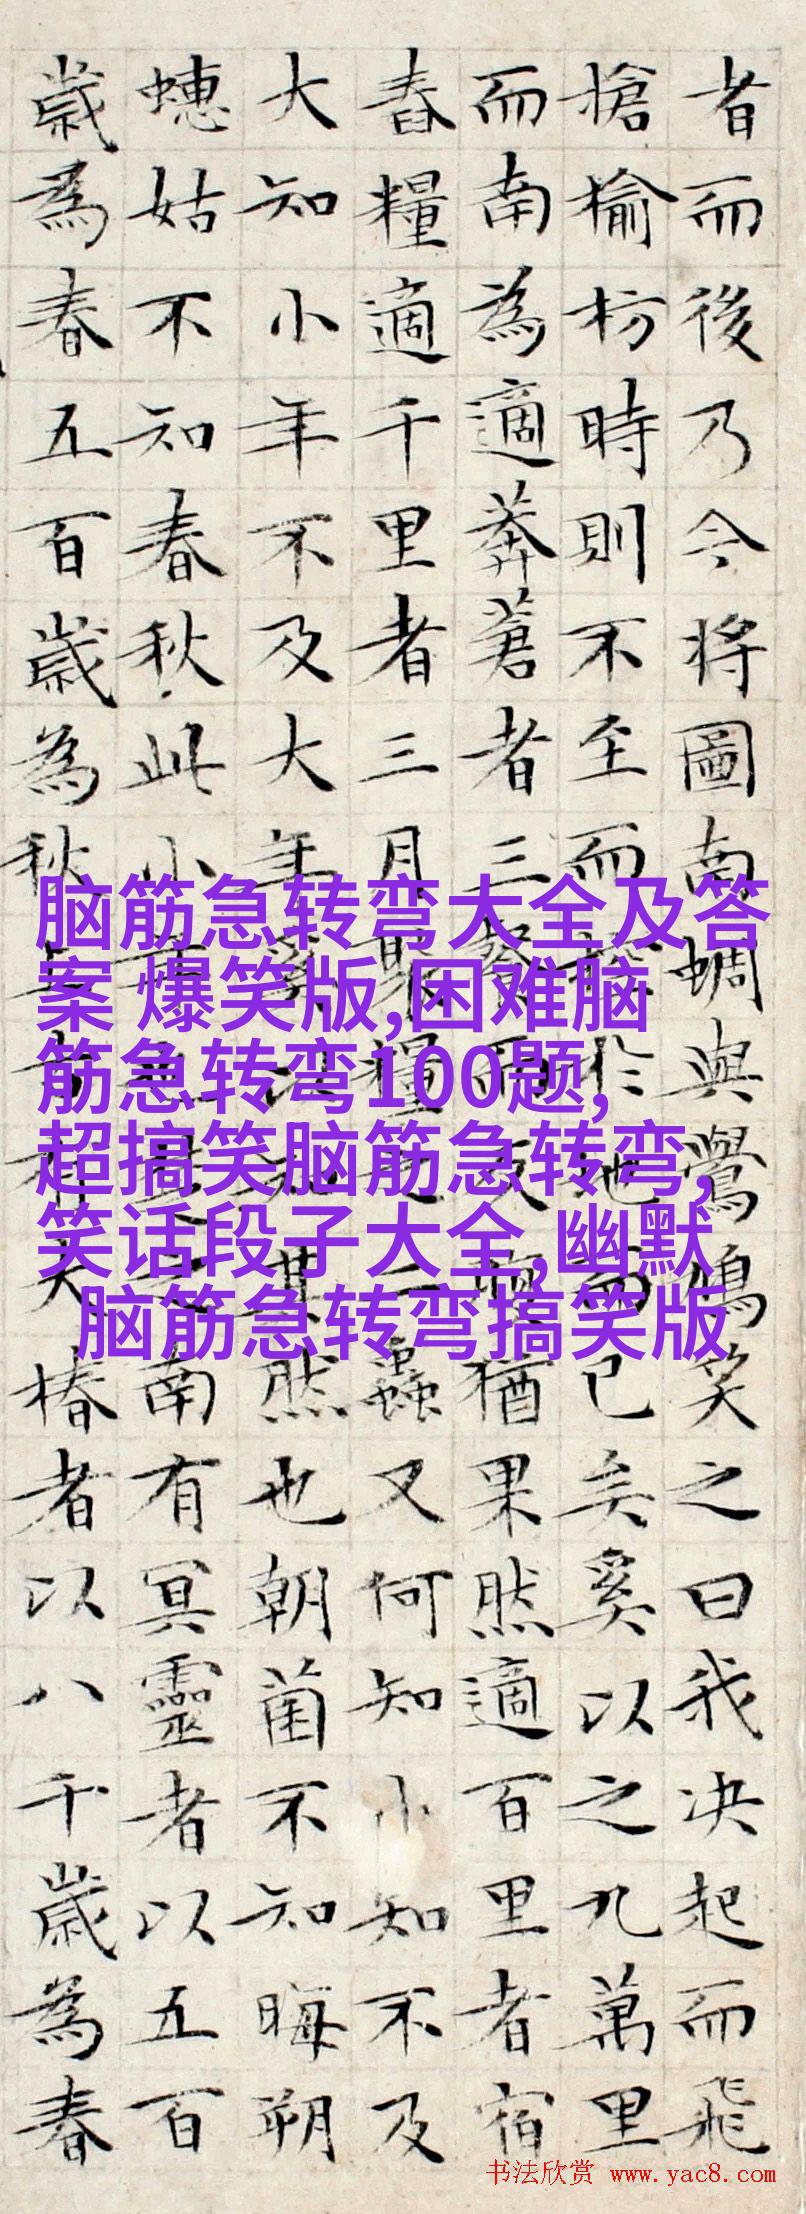 者而後乃今將圖南蜩與鷽鳩笑之曰我决起而飛
槍榆枋時則不至而控於地而已矣奚以之九萬里
而南為適莽蒼者三飡而反腹猶果然適百里者宿
舂糧適千里者三月聚糧之二蟲又何知小知不及
大知小年不及大年奚以知其然也朝菌不知晦朔
蟪姑不知春秋此小年也楚之南有冥靈者以五百
歲為春五百歲為秋上古有大椿者以八千歲為春
脑筋急转弯大全及答
案 爆笑版,困难脑
筋急转弯100题,
超搞笑脑筋急转弯,
笑话段子大全,幽默
脑筋急转弯搞笑版
书法欣赏 www.yac8.com